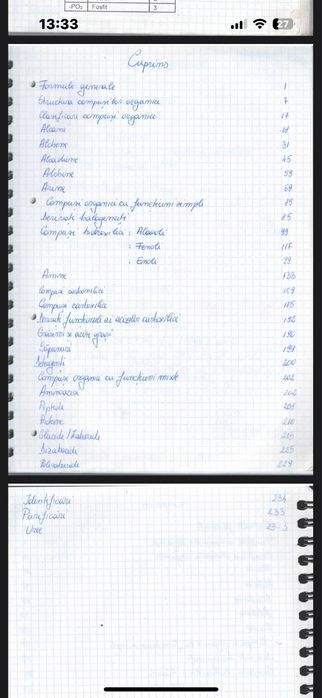 -PO₃ Fosfit 3
13:33 27
Cuprins
Formule generale 1
Structura compusilor organici 7
Clasificare compusi organici 17
Alcani 21
Alchene 31
Alcadiene 45
Alchine 59
Arene 69
Compusi organici cu functiuni simple 85
Derivati halogenati 85
Compusi hidroxilici : Alcooli 99
: Fenoli 117
: Enoli 99
Amine 133
Compusi carbonilici 159
Compusi carboxilici 175
Derivati functionali ai acizilor carboxilici 192
Grasimi si acizi grasi 196
Sapunuri 199
Detergenti 200
Compusi organici cu functiuni mixte 202
Aminoacizi 202
Peptide 209
Proteine 210
Glucide / Zaharide 215
Dizaharide 225
Polizaharide 229
Identificari 231
Purificari 233